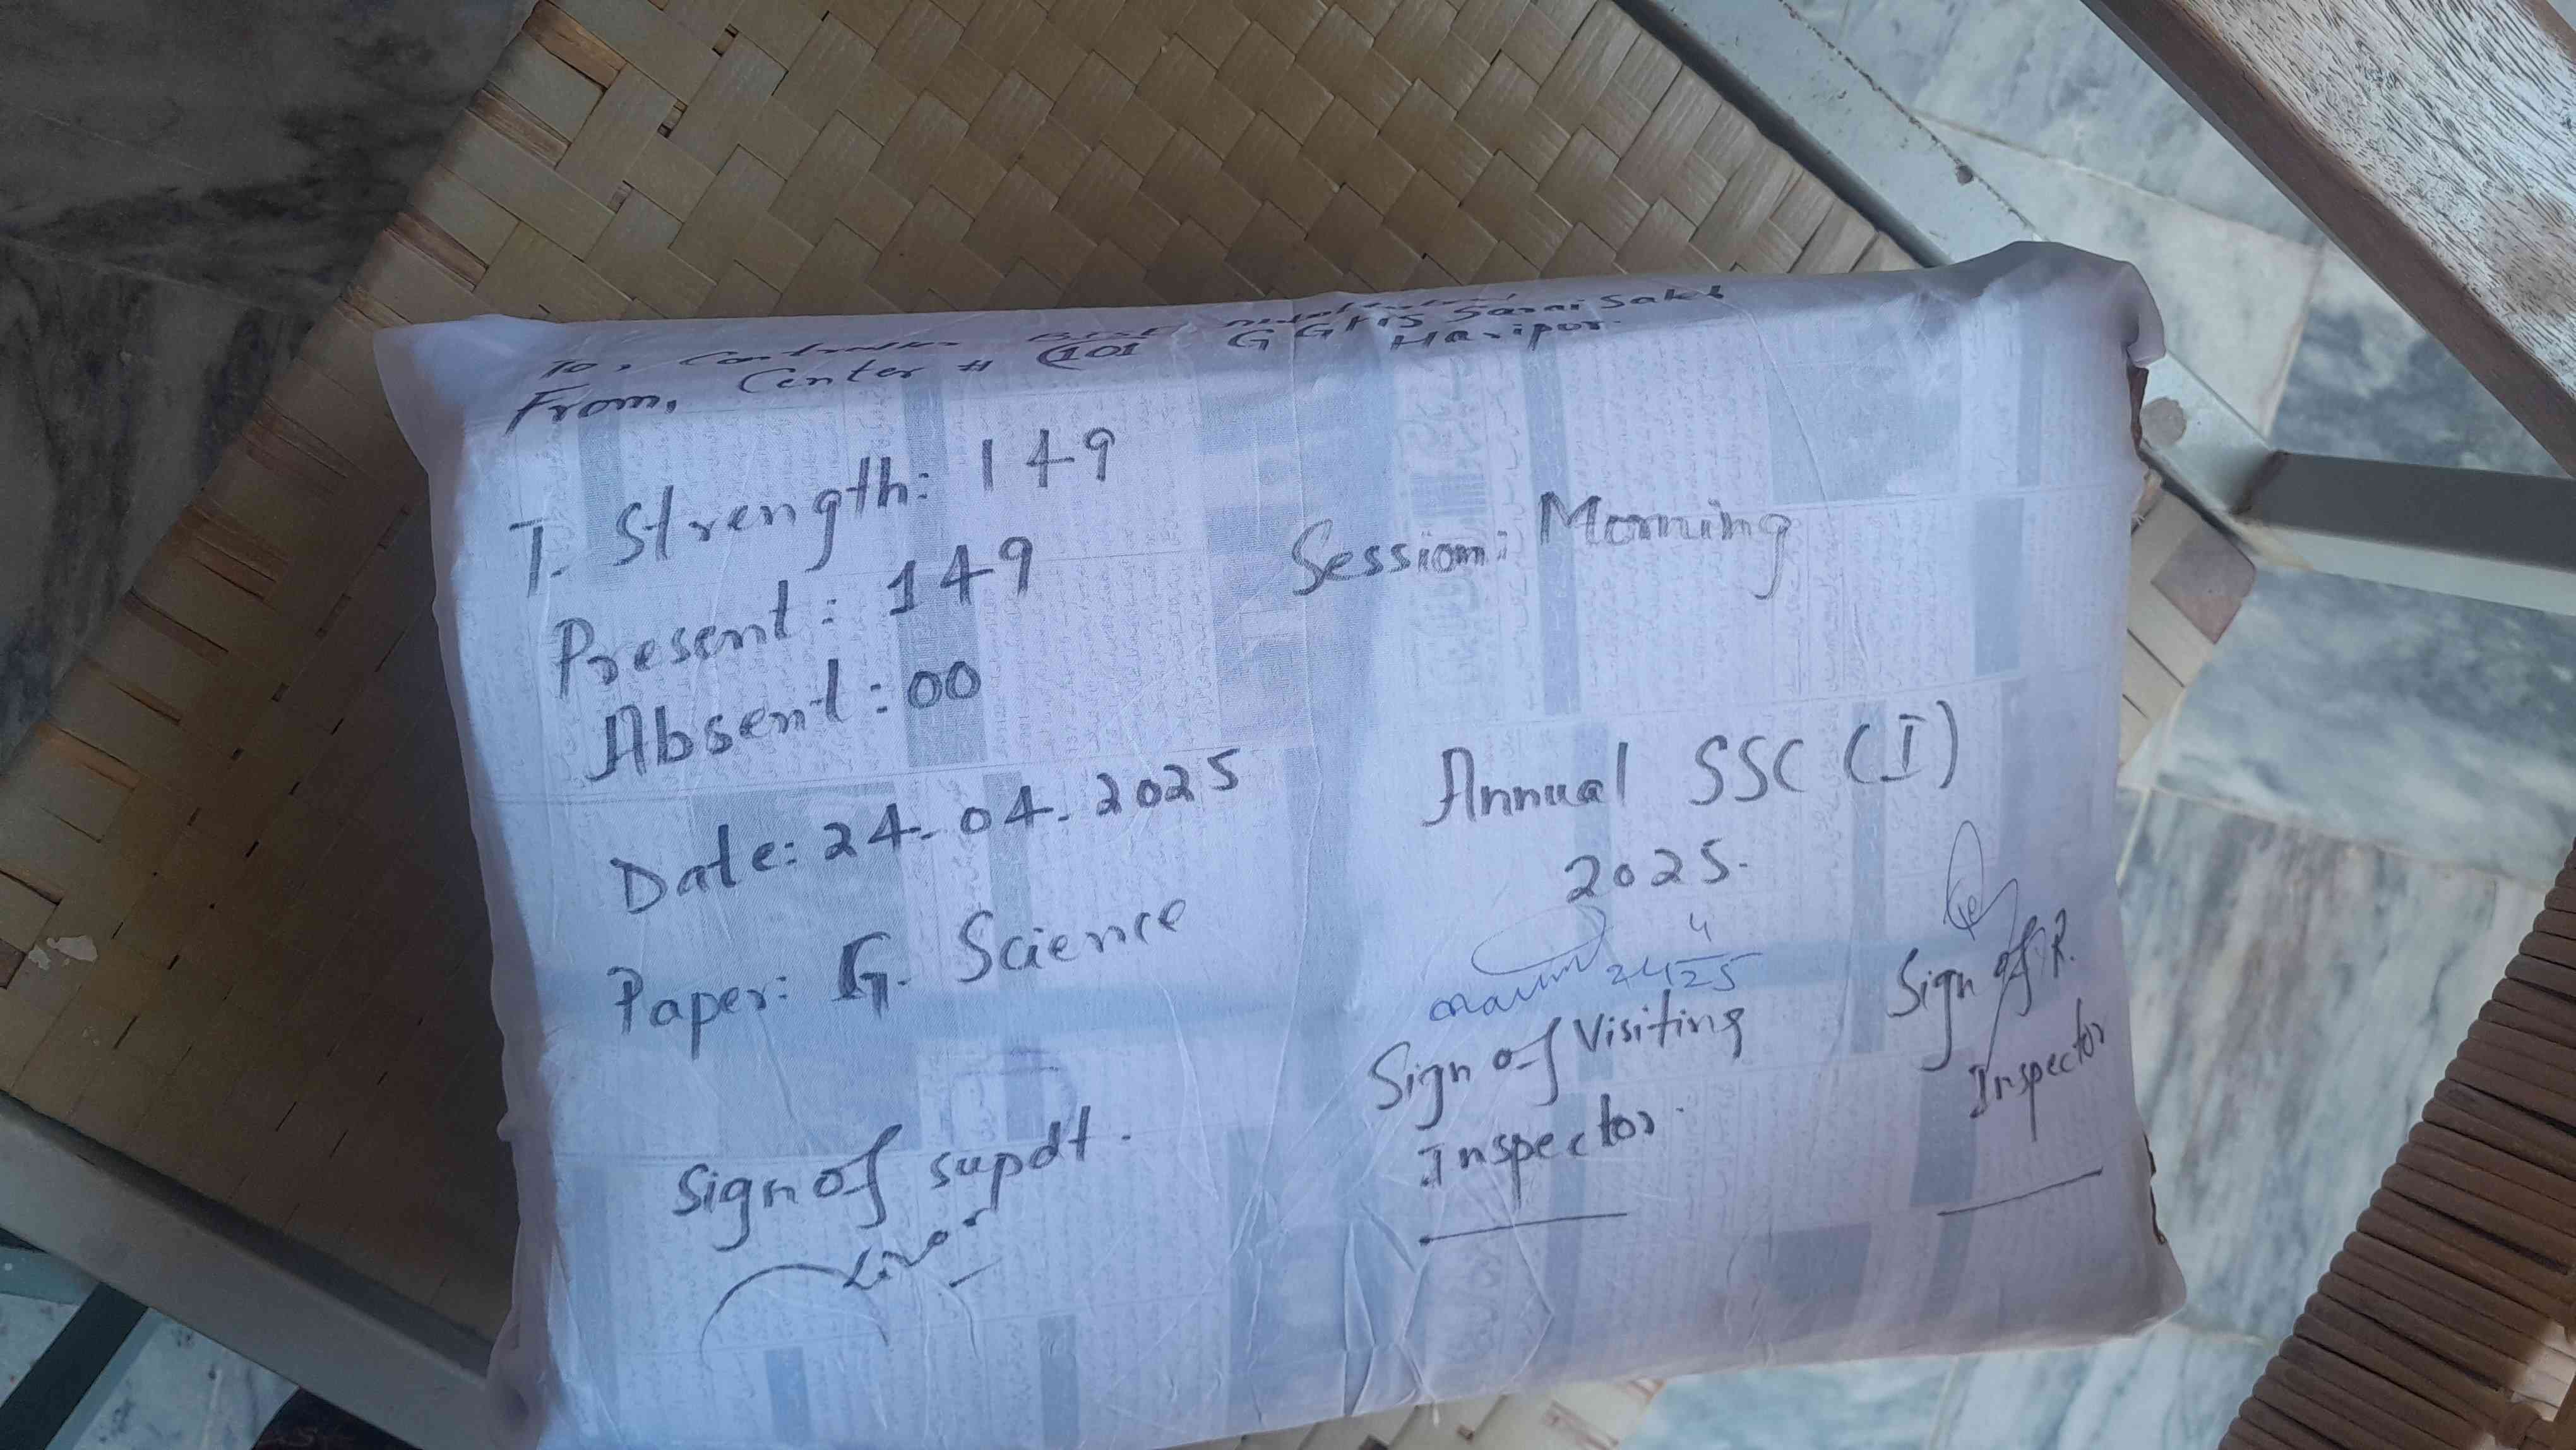 To, Controller BISE
From, Center # 101 GGHS Sarai Saleh
Haripur.
T. Strength: 149
Present: 149
Session: Morning
Absent: 00
Date: 24-04-2025
Annual SSC (I)
2025.
Paper: G. Science
24 4 25
Sign of Visiting
Inspector.
Sign of R.
Inspector
Sign of supdt.